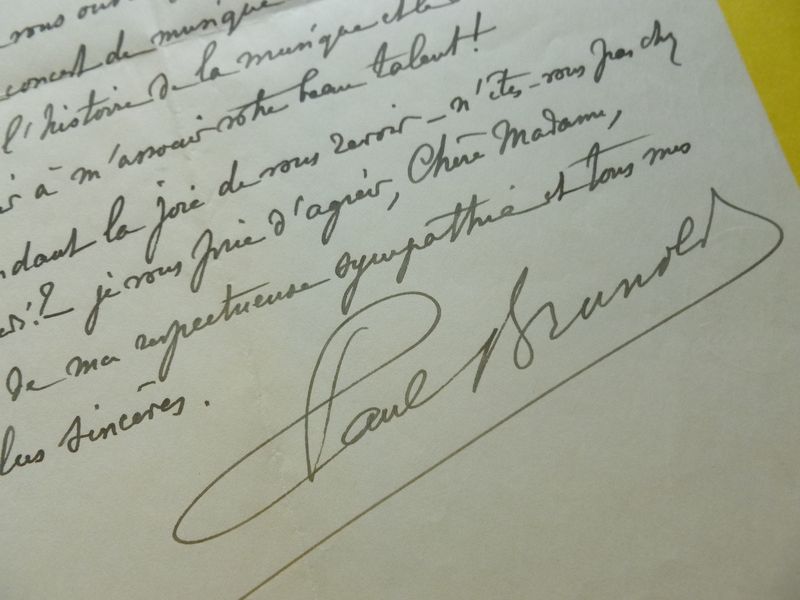 vous
concert de musique
l'histoire de la musique et la
à m'associer votre beau talent!
la joie de vous revoir _ n'êtes-vous pas chez
? _ je vous prie d'agréer, Chère Madame,
de ma respectueuse sympathie et tous mes
plus sincères.
Paul Brunold